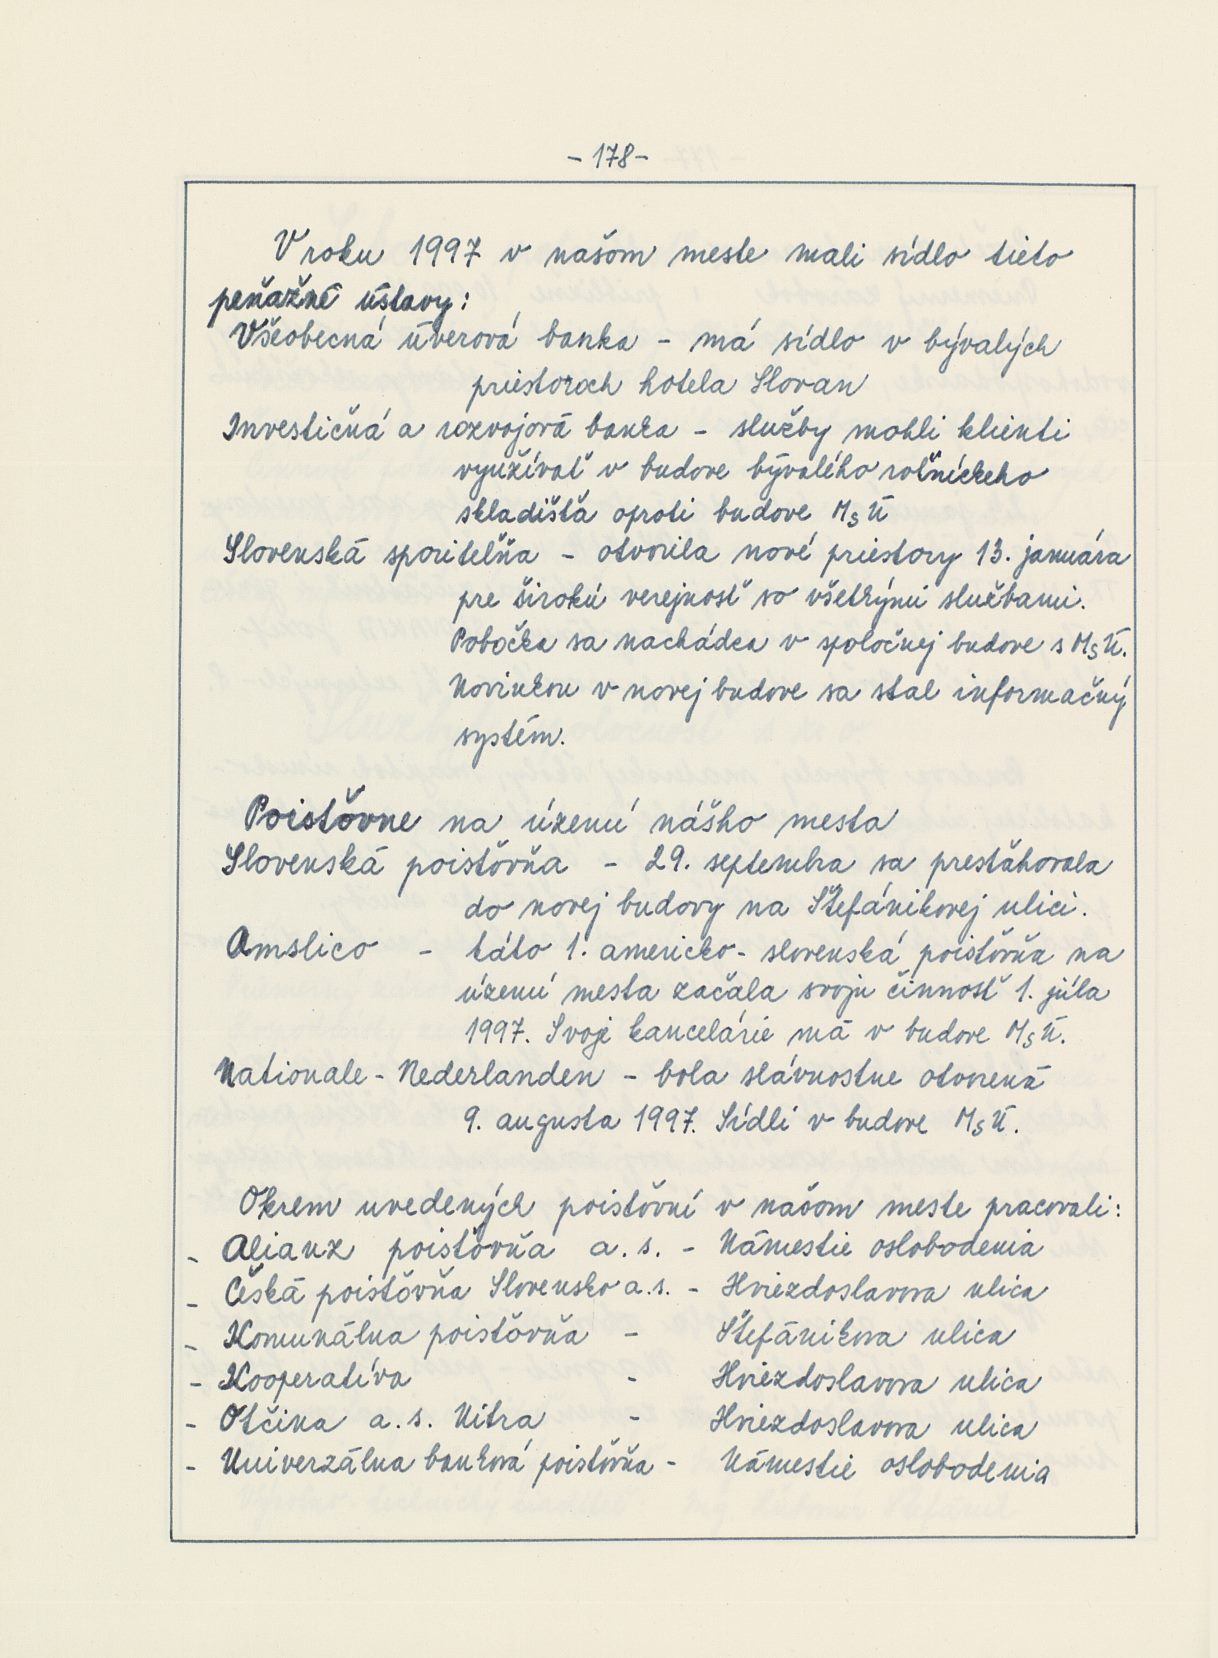 - 178 -
V roku 1997 v našom meste mali sídlo tieto
peňažné ústavy:
Všeobecná úverová banka - má sídlo v bývalých
priestoroch hotela Slovan
Investičná a rozvojová banka - služby mohli klienti
využívať v budove bývalého roľníckeho
skladišťa oproti budove MsÚ
Slovenská sporiteľňa - otvorila nové priestory 13. januára
pre širokú verejnosť so všetkými službami.
Pobočka sa nachádza v spoločnej budove s MsÚ.
Novinkou v novej budove sa stal informačný
systém.
Poisťovne na území nášho mesta
Slovenská poisťovňa - 29. septembra sa presťahovala
do novej budovy na Štefánikovej ulici.
Amslico - táto 1. americko-slovenská poisťovňa na
území mesta začala svoju činnosť 1. júla
1997. Svoje kancelárie má v budove MsÚ.
Nationale - Nederlanden - bola slávnostne otvorená
9. augusta 1997. Sídli v budove MsÚ.
Okrem uvedených poisťovní v našom meste pracovali:
- Alianz poisťovňa a.s. - Námestie oslobodenia
- Česká poisťovňa Slovensko a.s. - Hviezdoslavova ulica
- Komunálna poisťovňa - Štefánikova ulica
- Kooperatíva - Hviezdoslavova ulica
- Otčina a.s. Nitra - Hviezdoslavova ulica
- Univerzálna banková poisťovňa - Námestie oslobodenia